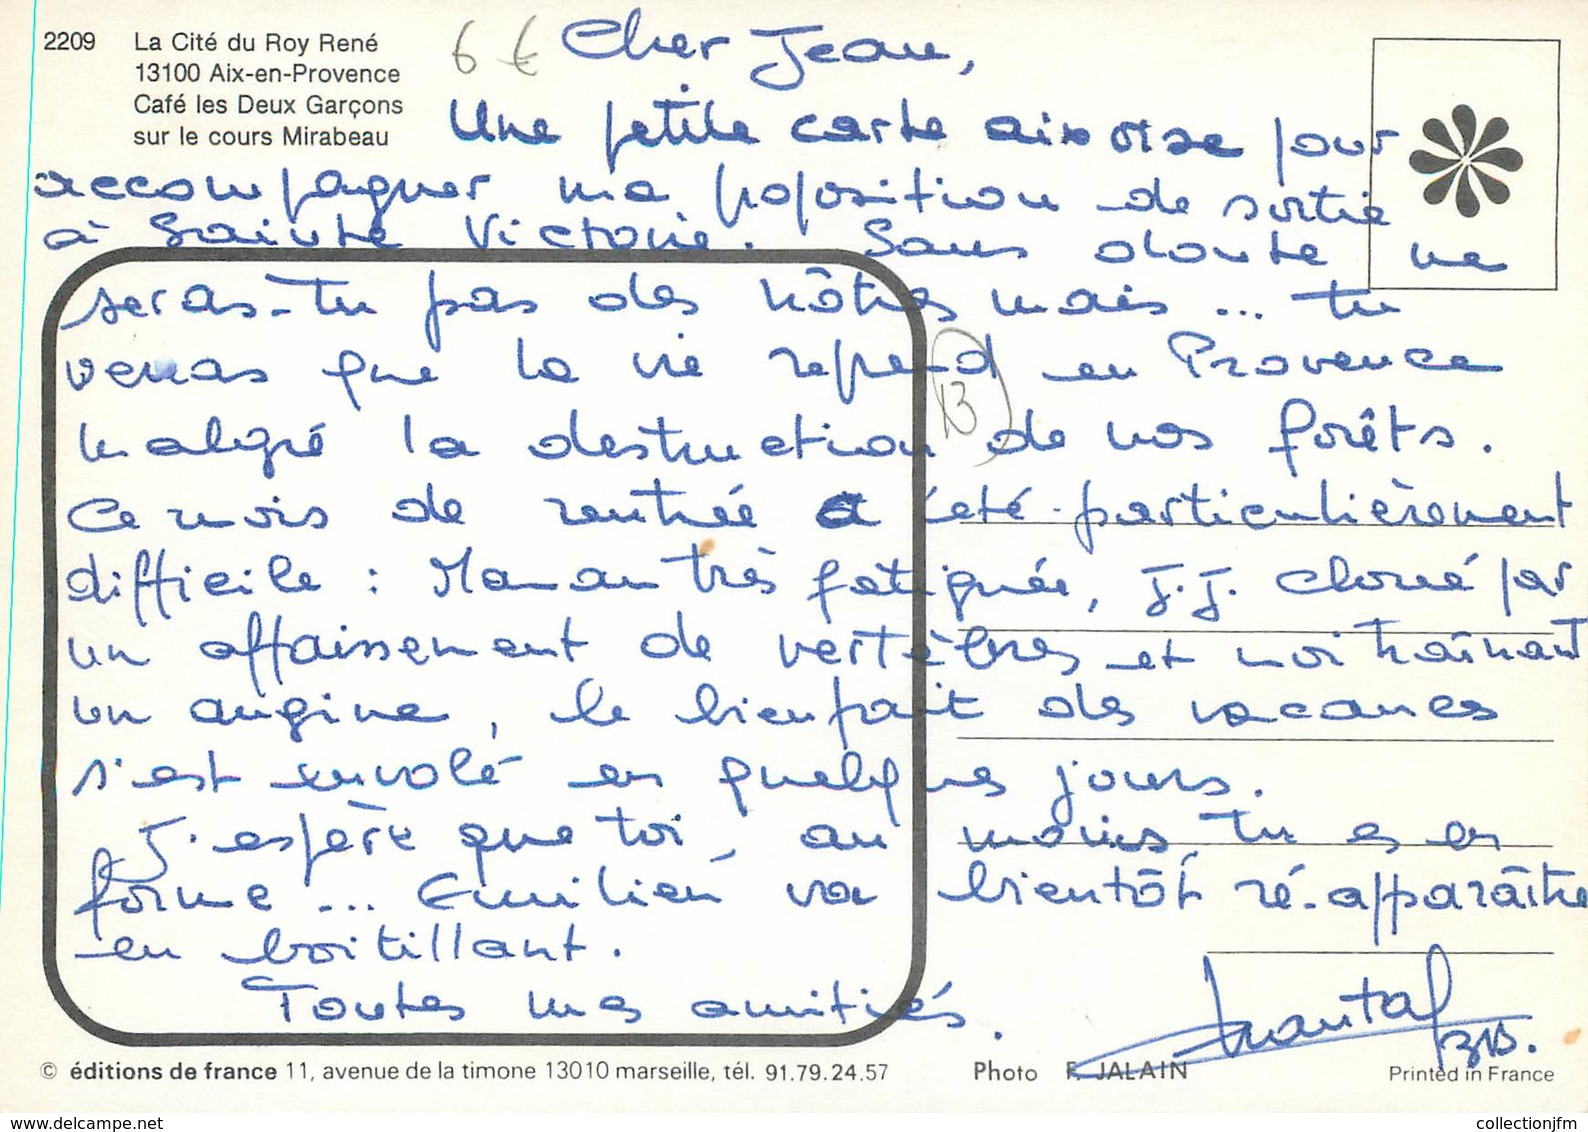 2209 La Cité du Roy René
13100 Aix-en-Provence
Café les Deux Garçons
sur le cours Mirabeau
6 €
Cher Jean,
Une petite carte aixoise pour
accompagner ma poposition de sortie
à Sainte Victoire. Sans doute ne
seras-tu pas des nôtres mais ... tu
verras que la vie reprend en Provence
malgré la destruction de nos forêts.
13
Ce mois de rentrée a été particulièrement
difficile : Maman très fatiguée, J.J. cloué par
un affaissement de vertèbres et moi traînant
un angine, le bienfait des vacances
s'est envolé en quelques jours.
J'espère que toi, au moins, tu es en
forme ... Emilien va bientôt ré-apparaître
en boitillant.
Toutes mes amitiés.
Chantal
© éditions de france 11, avenue de la timone 13010 marseille, tél. 91.79.24.57
Photo F. JALAIN
Printed in France
www.delcampe.net
collectionjfm